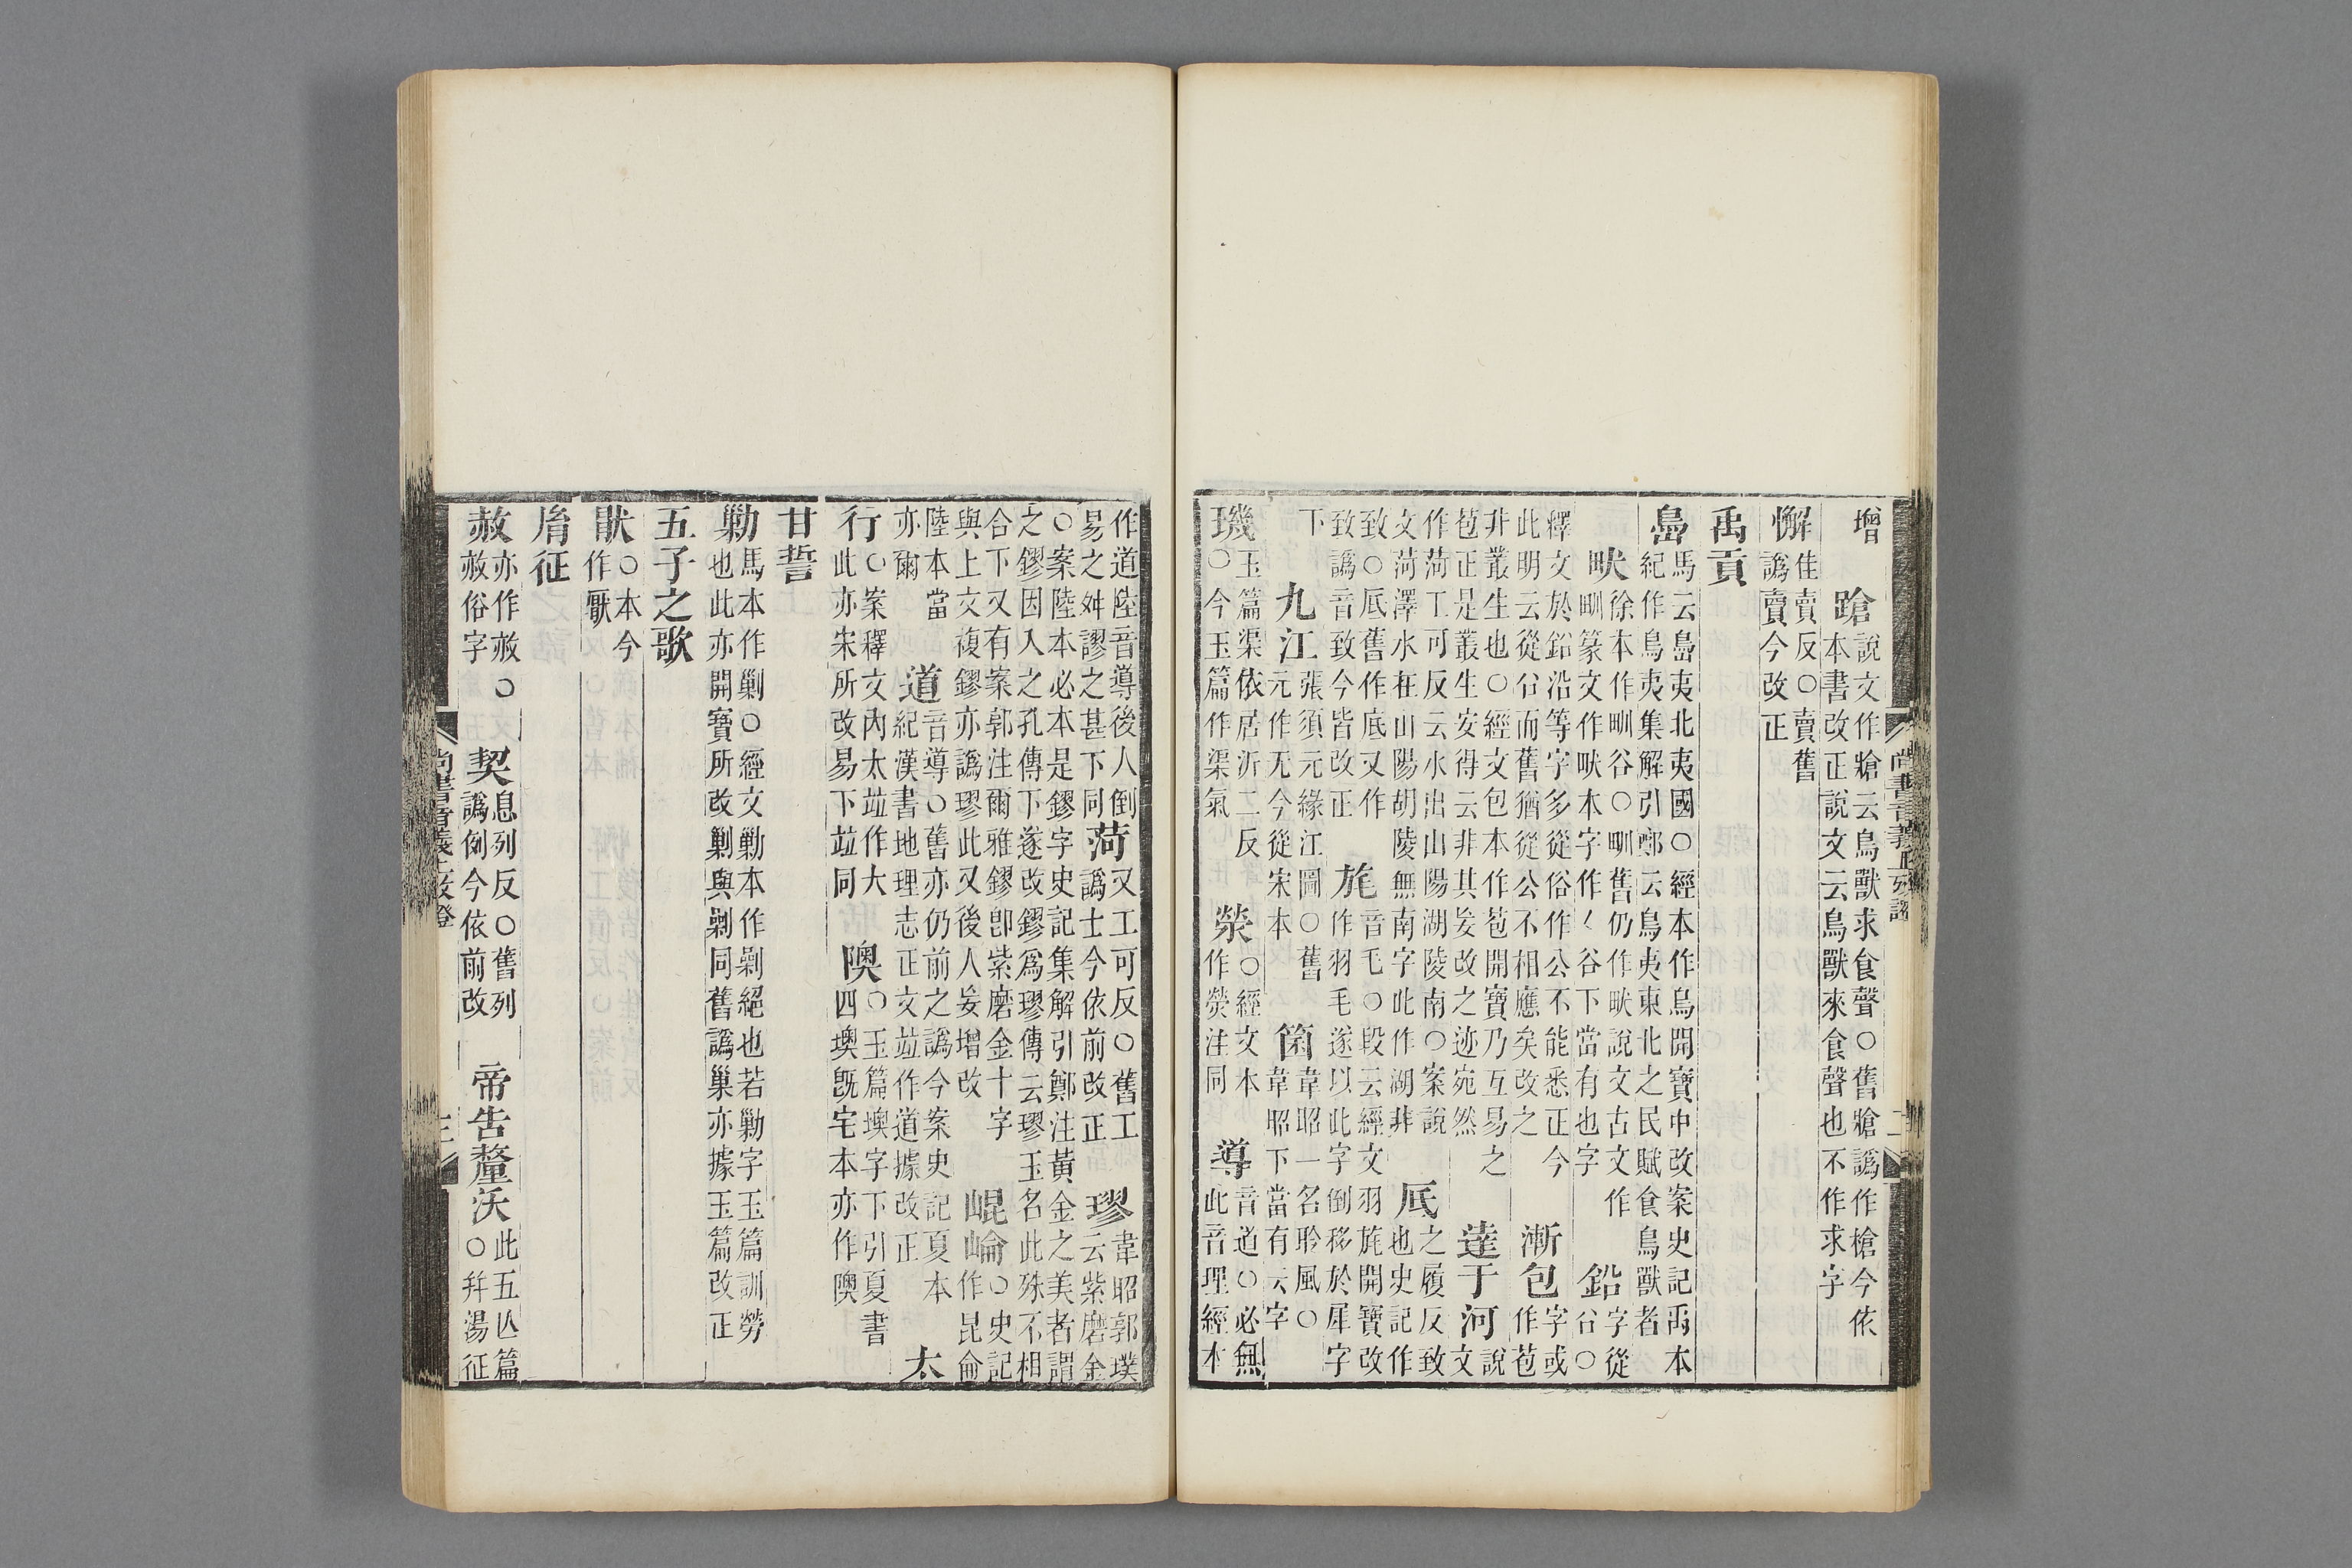 增
蹌說文作牄云鳥獸求食聲○舊牄譌作槍今依
本書改正說文云鳥獸來食聲也不作求字
懈佳賣反○賣舊
譌賣今改正
禹貢
島馬云島夷北夷國○經本作鳥開寶中改案史記禹本
紀作鳥夷集解引鄭云鳥夷東北之民賦食鳥獸者
畎徐本作甽谷○甽舊仍作畎說文古文作
甽篆文作畎本字作𡿨谷下當有也字
鉛字從
㕣○
釋文於鉛沿等字多從俗作公不能悉正今
此明云從㕣而舊猶從公不相應矣改之
漸包字或
作苞
非叢生也○經文包本作苞開寶乃互易之
苞正是叢生安得云非其妄改之迹宛然
達于河說
文
作菏工可反云水出山陽湖陵南○案說
文菏澤水在山陽胡陵無南字此作湖非
厎之履反致
也史記作
致○厎舊作底又作
致譌音致今皆改正
旄音毛○段云經文羽旄開寶改
作羽毛遂以此字倒移於犀字
下
九江張須元緣江圖○舊
元作无今從宋本
箘韋昭一名聆風○
韋昭下當有云字
璣玉篇渠依居沂二反
○今玉篇作渠氣
滎○經文本
作熒注同
導音道○必無
此音理經本
作道陸音導後人倒
易之舛謬之甚下同
菏又工可反○舊工
譌士今依前改正
璆韋昭郭璞
云紫磨金
○案陸本必本是鏐字史記集解引鄭注黃金之美者謂
之鏐因入之孔傳下遂改鏐爲璆傳云璆玉名此殊不相
合下又有案郭注爾雅鏐卽紫磨金十字
與上文複鏐亦譌璆此又後人妄增改
崐崘○史記
作昆侖
陸本當
亦爾
道音導○舊亦仍前之譌今案史記夏本
紀漢書地理志正文並作道據改正
太
行○案釋文內太並作大
此亦宋所改易下並同
隩○玉篇墺字下引夏書
四墺旣宅本亦作隩
甘誓
勦馬本作剿○經文勦本作剿絕也若勦字玉篇訓勞
也此亦開寶所改剿與剿同舊譌巢亦據玉篇改正
五子之歌
猒○本今
作厭
胤征
赦亦作赦○
赦俗字
契息列反○舊列
譌例今依前改
帝告釐沃此五亾篇
○幷湯征